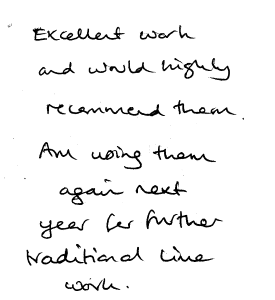 Excellent work
and would highly
recommend them.
Am using them
again next
year for further
traditional lime
work.